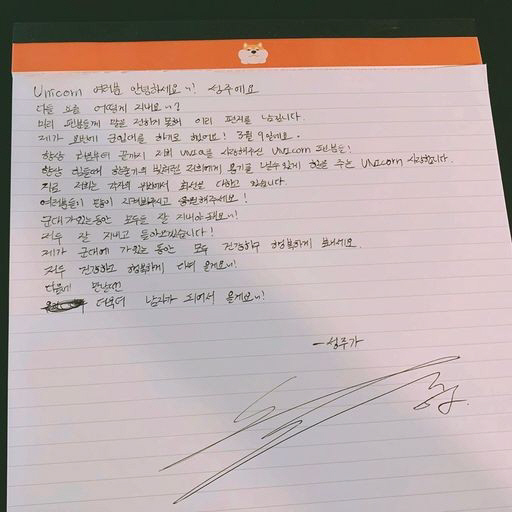 Unicorn 여러분 안녕하세요 ㅎ! 성주에요
다들 요즘 어떻게 지내요ㅎ?
미리 팬분들께 말을 전하지 못해 이리 편지를 남깁니다.
제가 이번에 군입대를 하기로 했어요! 3월 9일에요.
항상 처음부터 끝까지 저희 UNIQ를 사랑해주신 UNICORN 팬분들!
항상 힘들때 한줄기의 빛처럼 저희에게 용기를 낼수있게 힘을 주는 UNICORN 사랑합니다.
지금 저희는 각자의 위치에서 최선을 다하고 있습니다.
여러분들이 많이 지켜봐주시고 응원해주세요!
군대 가있는동안 모두들 잘 지내야해요ㅎ!
저두 잘 지내고 돌아오겠습니다!
제가 군대에 가있는 동안 모두 건강하구 행복하게 보내세요.
저두 건강하고 행복하게 다녀 올게요ㅎ!
다음에 만날땐
더욱더 남자가 되어서 올게요ㅎ!
- 성주가